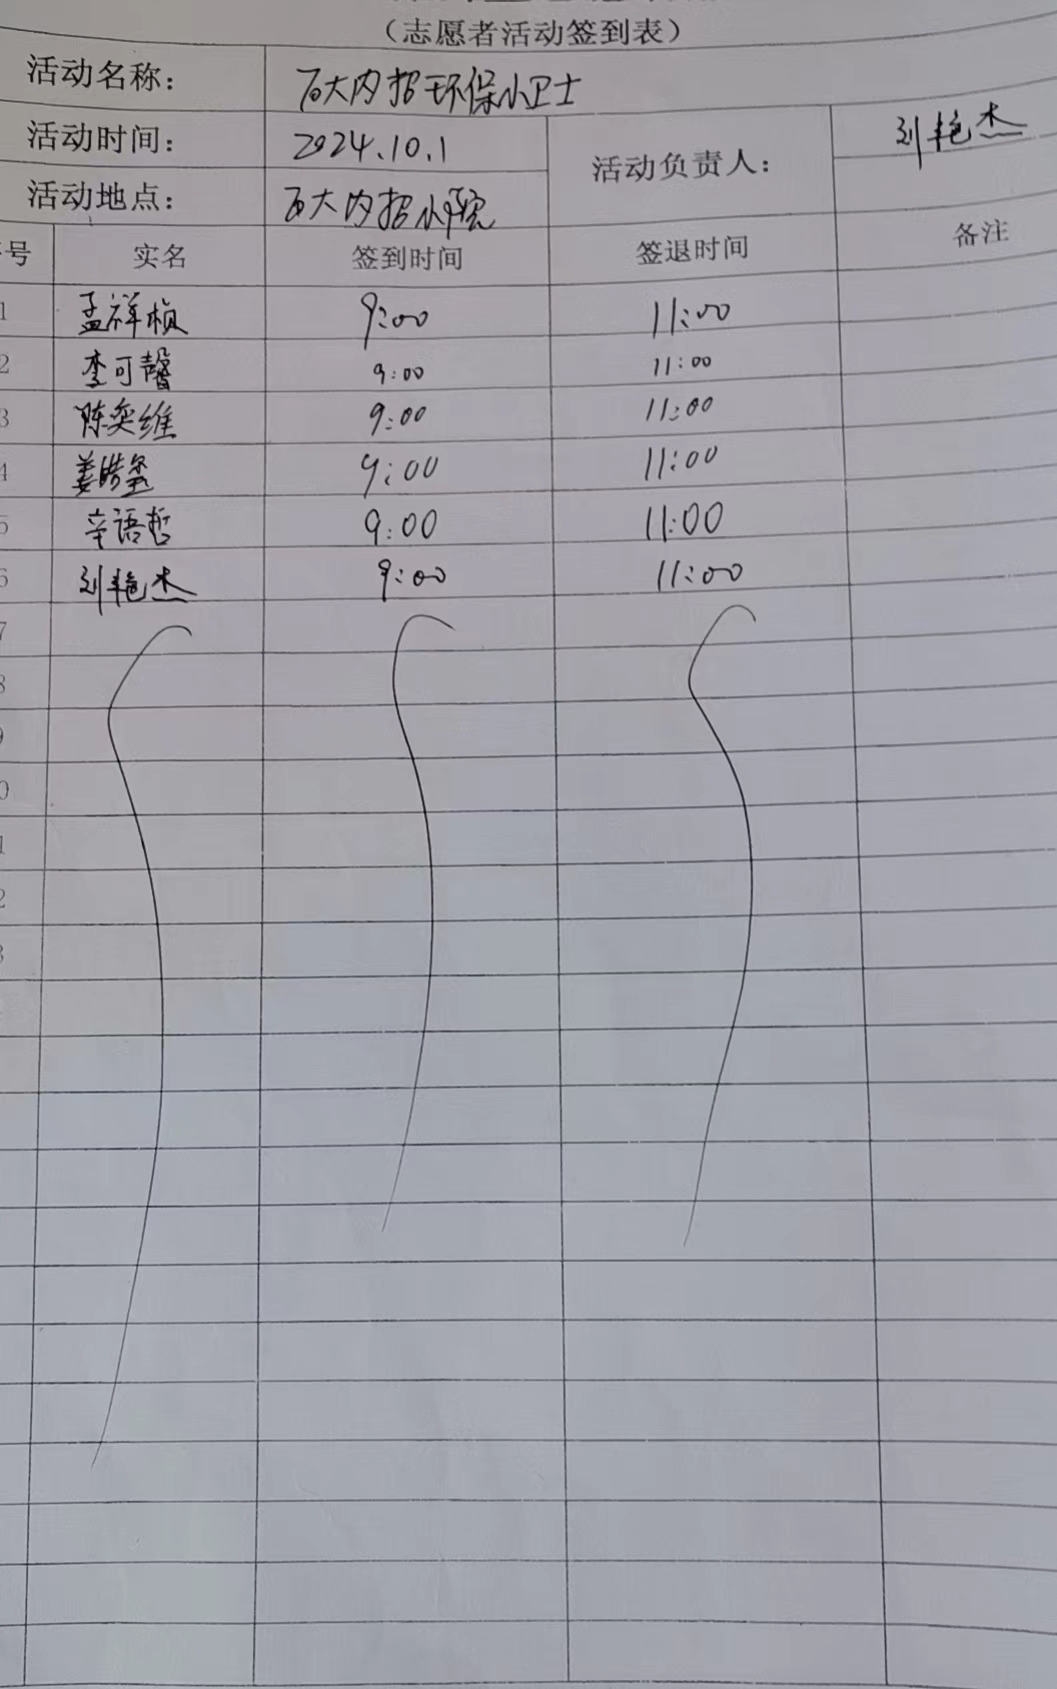 （志愿者活动签到表）
活动名称： 石大内招环保小卫士
活动时间： 2024.10.1 活动负责人： 刘艳杰
活动地点： 石大内招小院
号 实名 签到时间 签退时间 备注
1 孟祥桢 9:00 11:00
2 李可馨 9:00 11:00
3 陈奕维 9:00 11:00
4 姜皓 9:00 11:00
5 辛语哲 9:00 11:00
6 刘艳杰 9:00 11:00
7
8
9
0
1
2
3